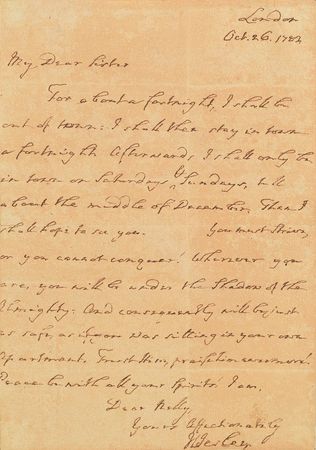 London
Oct. 26. 1782
My Dear Sister
For about a fortnight, I shall be
out of town: I shall then stay in town
a fortnight. Afterwards, I shall only be
in town on Saturdays & Sundays, till
about the middle of December, Then I
shall hope to see you. You must strive,
or you cannot conquer. Wherever you
are, you will be under the Shadow of the
Almighty: And consequently will be just
as safe, as if you was sitting in your own
Apartment. Trust Him, praise Him evermore!
Peace be with all your Spirits! I am,
Dear
Yours Affectionately
J Wesley